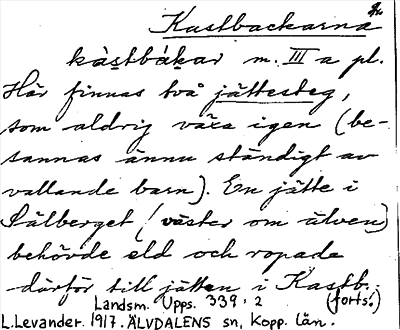 Kastbackarna
kàs̲tbàkar m. III a pl.
Här finnas två jättesteg,
som aldrig växa igen (be-
sannas ännu ständigt av
vallande barn). En jätte i
Dälberget (väster om älven)
behövde eld och ropade
därför till jätten i Kastb.
(forts.)
Landsm. Upps. 339:2
L.Levander. 1917. ÄLVDALENS sn, Kopp. län.